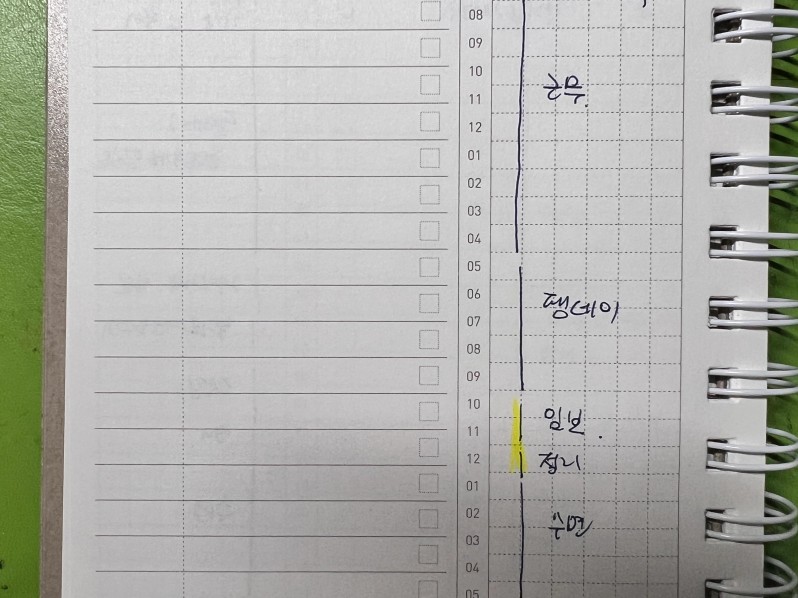 08
09
10
11 근무
12
01
02
03
04
05
06
07
08
09
10
11
12 정리
01
02 수면
03
04
05